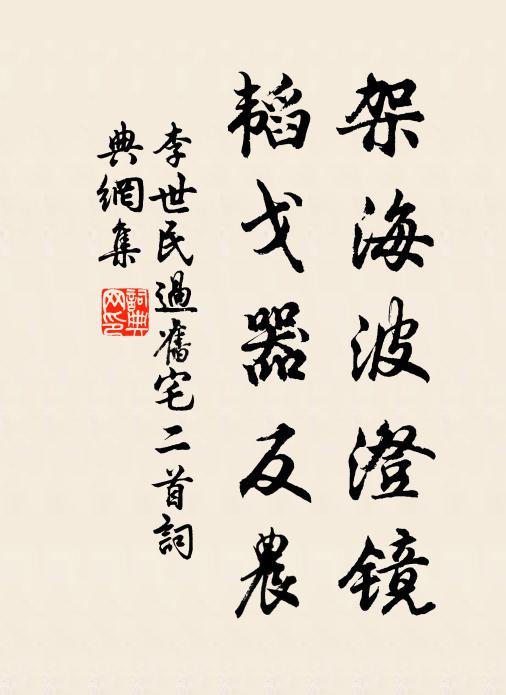 架海波澄镜
韬戈器反農
李世民過舊宅二首詞
典網集
詞典網印